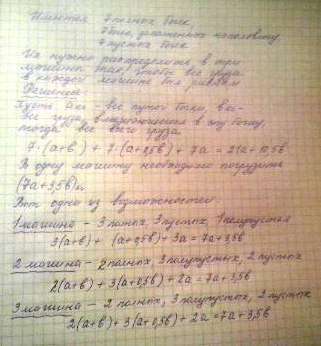 Имеется 7 полных бочек,
7 бочек, заполненных наполовину
7 пустых бочек
Их нужно распределить в три
машины так, чтобы вес груза
в каждой машине был равным
Решение:
Пусть а кг - вес пустой бочки, в кг -
вес груза, в эту бочку,
тогда вес всего груза
7·(а+в) + 7·(а+0,5в) + 7а = 21а + 10,5в
В одну машину необходимо погрузить
(7а+3,5в) кг
Вот одна из возможностей:
1 машина - 3 полных, 3 пустых, 1 полупустая
3(а+в) + (а+0,5в) + 3а = 7а+3,5в
2 машина - 2 полных, 3 полупустых, 2 пустых
2(а+в) + 3(а+0,5в) + 2а = 7а+3,5в
3 машина - 2 полных, 3 полупустых, 2 пустых
2(а+в) + 3(а+0,5в) + 2а = 7а+3,5в